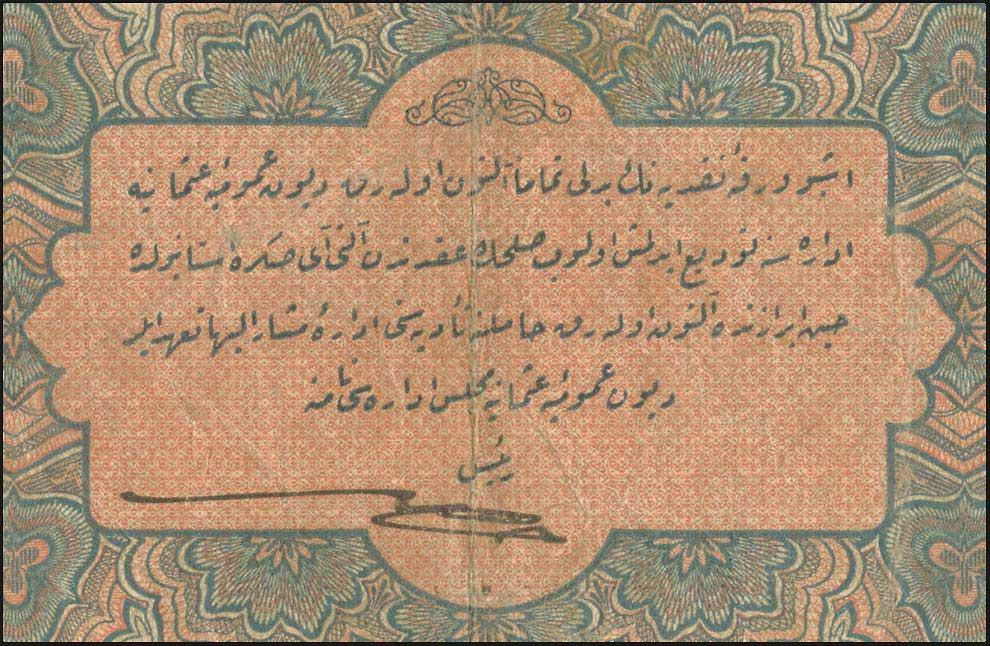 اشبو ورقهٔ نقدیه نڭ بدلی تماماً آلتون اوله رق دیون عمومیهٔ عثمانیه
اداره سنه تودیع ایدلمش اولوب صلحڭ عقدندن آلتی آی صڭره استانبولده
حین ابرازنده آلتون اوله رق حاملنه تأدیه سنی ادارهٔ مشار الیها تعهد ایلر
دیون عمومیهٔ عثمانیه مجلس اداره سی نامنه
رئیس